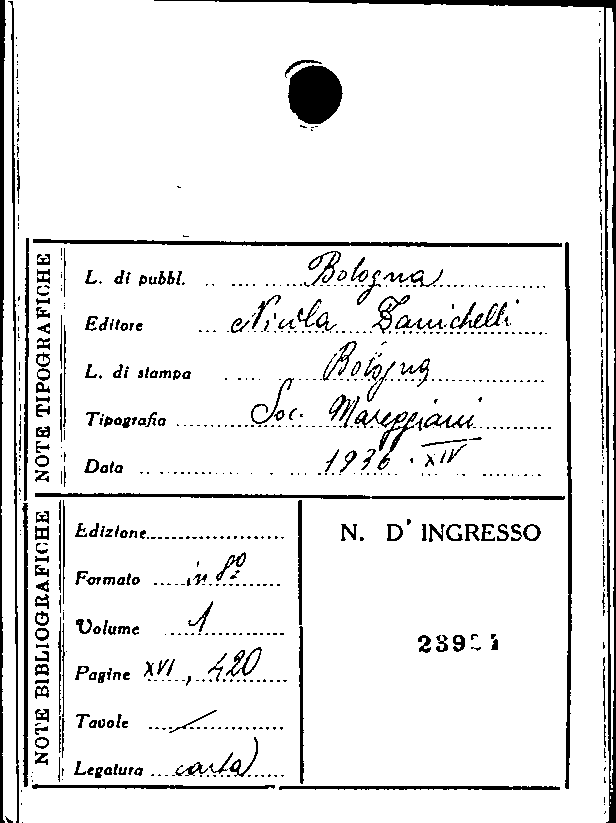 NOTE TIPOGRAFICHE
L. di pubbl. Bologna
Editore Nicola Zanichelli
L. di stampa Bologna
Tipografia Soc. Mareggiani
Data 1936 . XIV
NOTE BIBLIOGRAFICHE
Edizione
Formato in 8º
Volume 1
Pagine XVI, 420
Tavole /
Legatura carta
N. D' INGRESSO